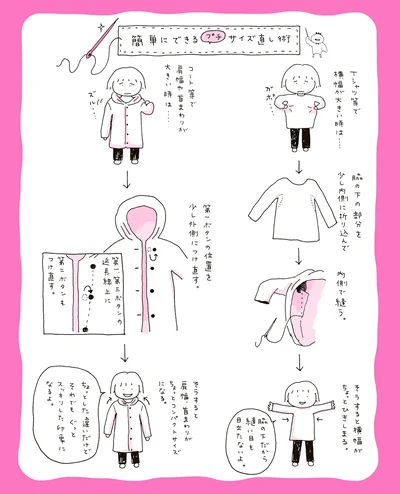 簡単にできるプチサイズ直し術
Tシャツ等で
横幅が大きい時は…
ガボ…
脇の下の部分を
少し内側に折り込んで
内側で縫う。
そうすると横幅が
ちょっとひきしまる。
脇の下だから
縫い目も
目立たないよ。
コート等で
肩幅や首まわりが
大きい時は…
ズル!!
第一ボタンの位置を
少し外側につけ直す。
第一、第三ボタンの
延長線上に
第二ボタンも
つけ直す。
そうすると
肩幅、首まわりが
ちょっとコンパクトサイズ
になる。
ちょっとした違いだけで
それでも、ぐっと
スッキリした印象に
なるよ。